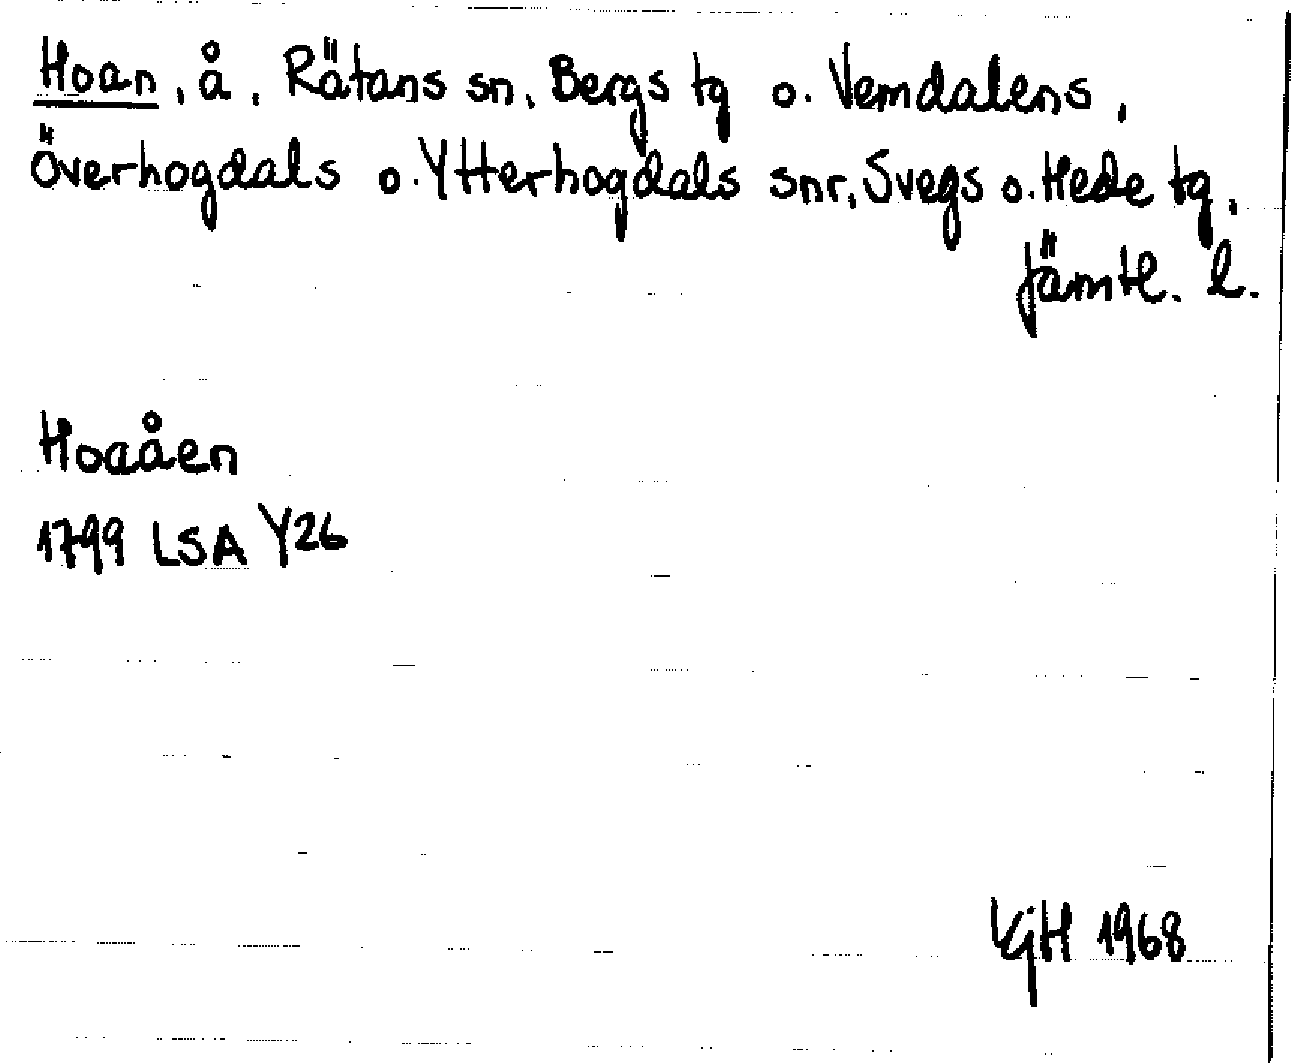 Hoan, å, Rätans sn, Bergs tg o. Vemdalens,
Överhogdals o. Ytterhogdals snr, Svegs o. Hede tg,
Jämtl. l.
Hoaåen
1799 LSA Y26
VGjH 1968